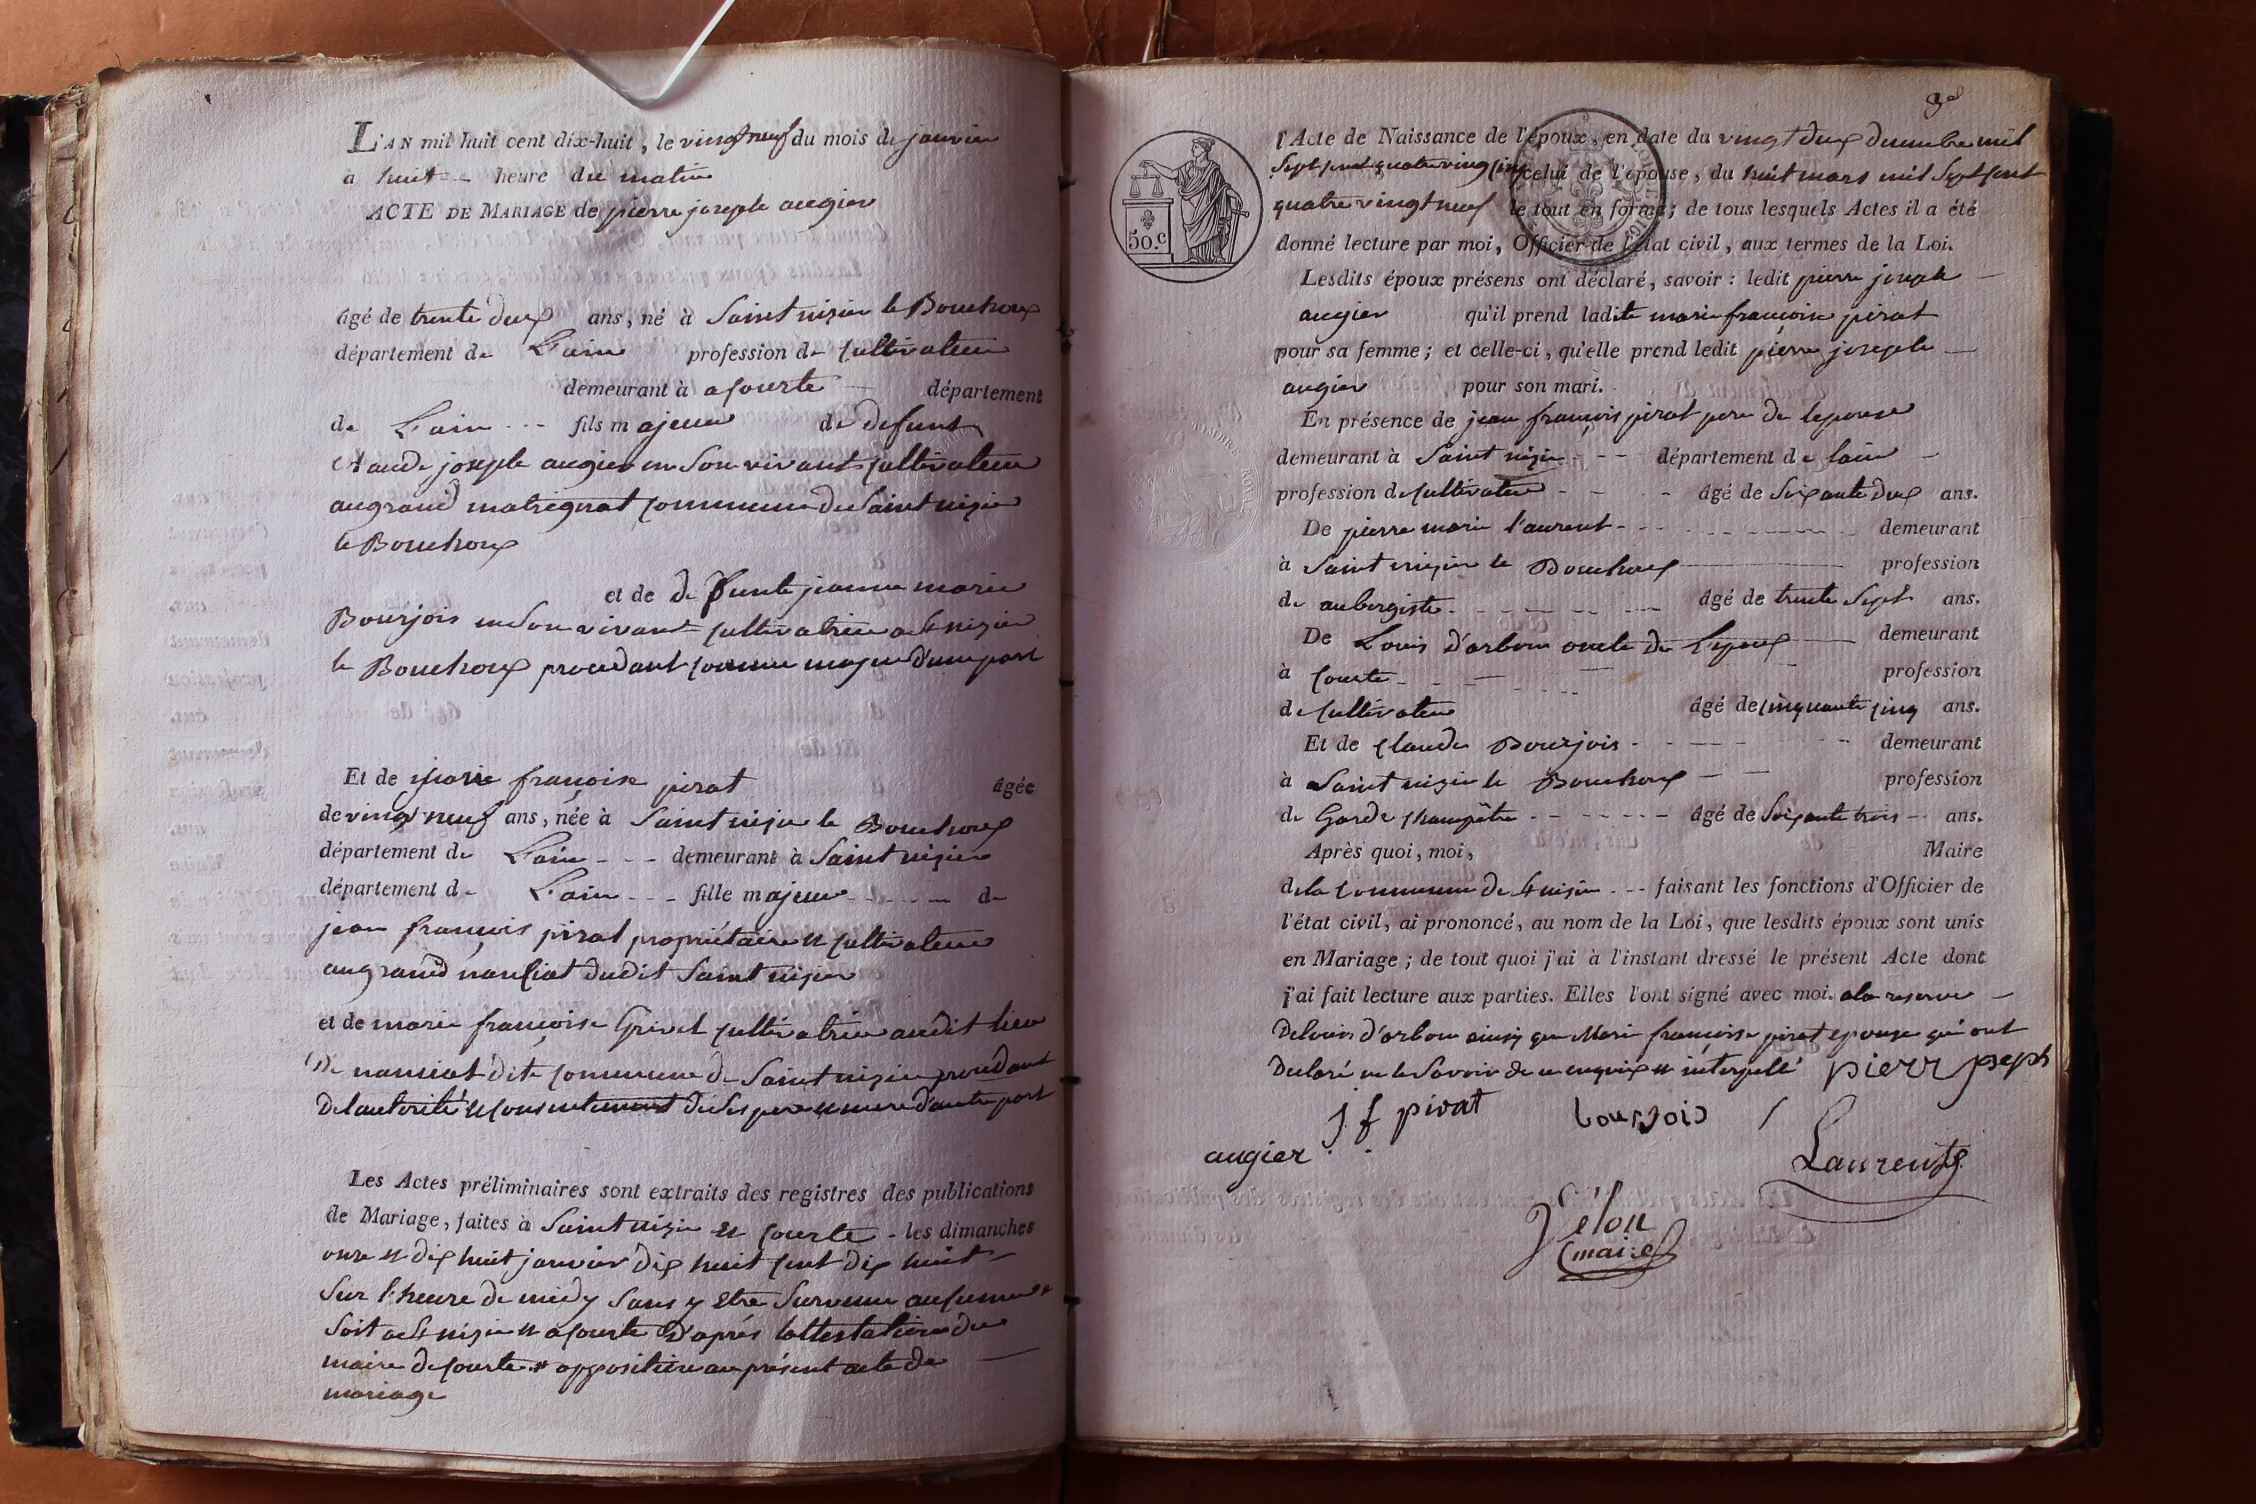 L'AN mil huit cent dix-huit, le vingt neuf du mois de janvier
à huit heure du matin
ACTE DE MARIAGE de pierre joseph augier
âgé de trente deux ans, né à Saint nizier le Bouchoux
département de L'ain profession de cultivateur
demeurant à a courte département
de L'ain fils majeur de defunt
Claude joseph augier en son vivant cultivateur
au grand matrignat commune de Saint nizier
le Bouchoux
et de defunte jeanne marie
Bourjois en son vivant cultivatrice a St nizier
le Bouchoux procedant comme majeur d'une part
Et de marie françoise pirat âgée
de vingt neuf ans, née à Saint nizier le Bouchoux
département de L'ain demeurant à Saint nizier
département de L'ain fille majeur de
jean françois pirat propriétaire et cultivateur
au grand nanciat dudit Saint nizier
et de marie françoise Grivel cultivatrice audit lieu
De nanciat dite commune de Saint nizier procedant
De l'autorité et consentement de ses pere et mere d'autre part
Les Actes préliminaires sont extraits des registres des publications
de Mariage, faites à Saint nizier et courte les dimanches
onze et dix huit janvier dix huit cent dix huit
Sur l'heure de midy sans y etre survenu aucune
soit a St nizier et a courte d'après l'attestation du
maire de courte opposition au présent acte de
mariage
3e
50.c
l'Acte de Naissance de l'époux, en date du vingt deux decembre mil
Sept cent quatre vingt cinq celui de l'épouse, du huit mars mil Sept cent
quatre vingt neuf le tout en forme; de tous lesquels Actes il a été
donné lecture par moi, Officier de l'état civil, aux termes de la Loi.
Lesdits époux présens ont déclaré, savoir: ledit pierre joseph
augier qu'il prend ladite marie françoise pirat
pour sa femme; et celle-ci, qu'elle prend ledit pierre joseph
augier pour son mari.
En présence de jean françois pirat pere de lepouse
demeurant à Saint nizier département de lain
profession de cultivateur âgé de Soixante deux ans.
De pierre marie l'aurent demeurant
à Saint nizier le Bouchoux profession
de aubergiste âgé de trente Sept ans.
De Louis d'arbon oncle de L'epoux demeurant
à courte profession
de cultivateur âgé de cinquante cinq ans.
Et de Claude Bourjois demeurant
à Saint nizier le Bouchoux profession
de Garde champêtre âgé de Soixante trois ans.
Après quoi, moi, Maire
de la commune de St nizier faisant les fonctions d'Officier de
l'état civil, ai prononcé, au nom de la Loi, que lesdits époux sont unis
en Mariage; de tout quoi j'ai à l'instant dressé le présent Acte dont
j'ai fait lecture aux parties. Elles l'ont signé avec moi. a la reserve
De louis d'arbon ainsi que Marie françoise pirat epouse qui ont
Declaré ne le Savoir de ce enquis et interpellé pierr joseph
j. f. pirat bourjois
augier Laurent
Vélon
maire